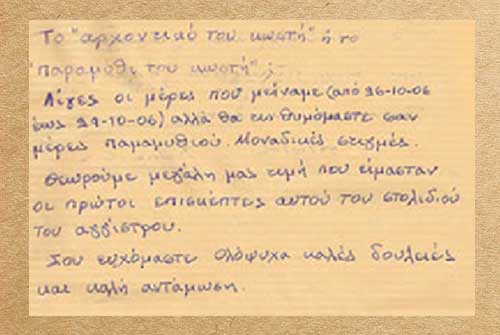 Το "αρχοντικό του κωστή" ή το
"παραμύθι του κωστή" ;
Λίγες οι μέρες που μείναμε (από 26-10-06
έως 29-10-06) αλλά θα τις θυμόμαστε σαν
μέρες παραμυθιού. Μοναδικές στιγμές.
Θεωρούμε μεγάλη μας τιμή που είμασταν
οι πρώτοι επισκέπτες αυτού του στολιδιού
του αγγίστρου.
Σου ευχόμαστε ολόψυχα καλές δουλειές
και καλή αντάμωση.